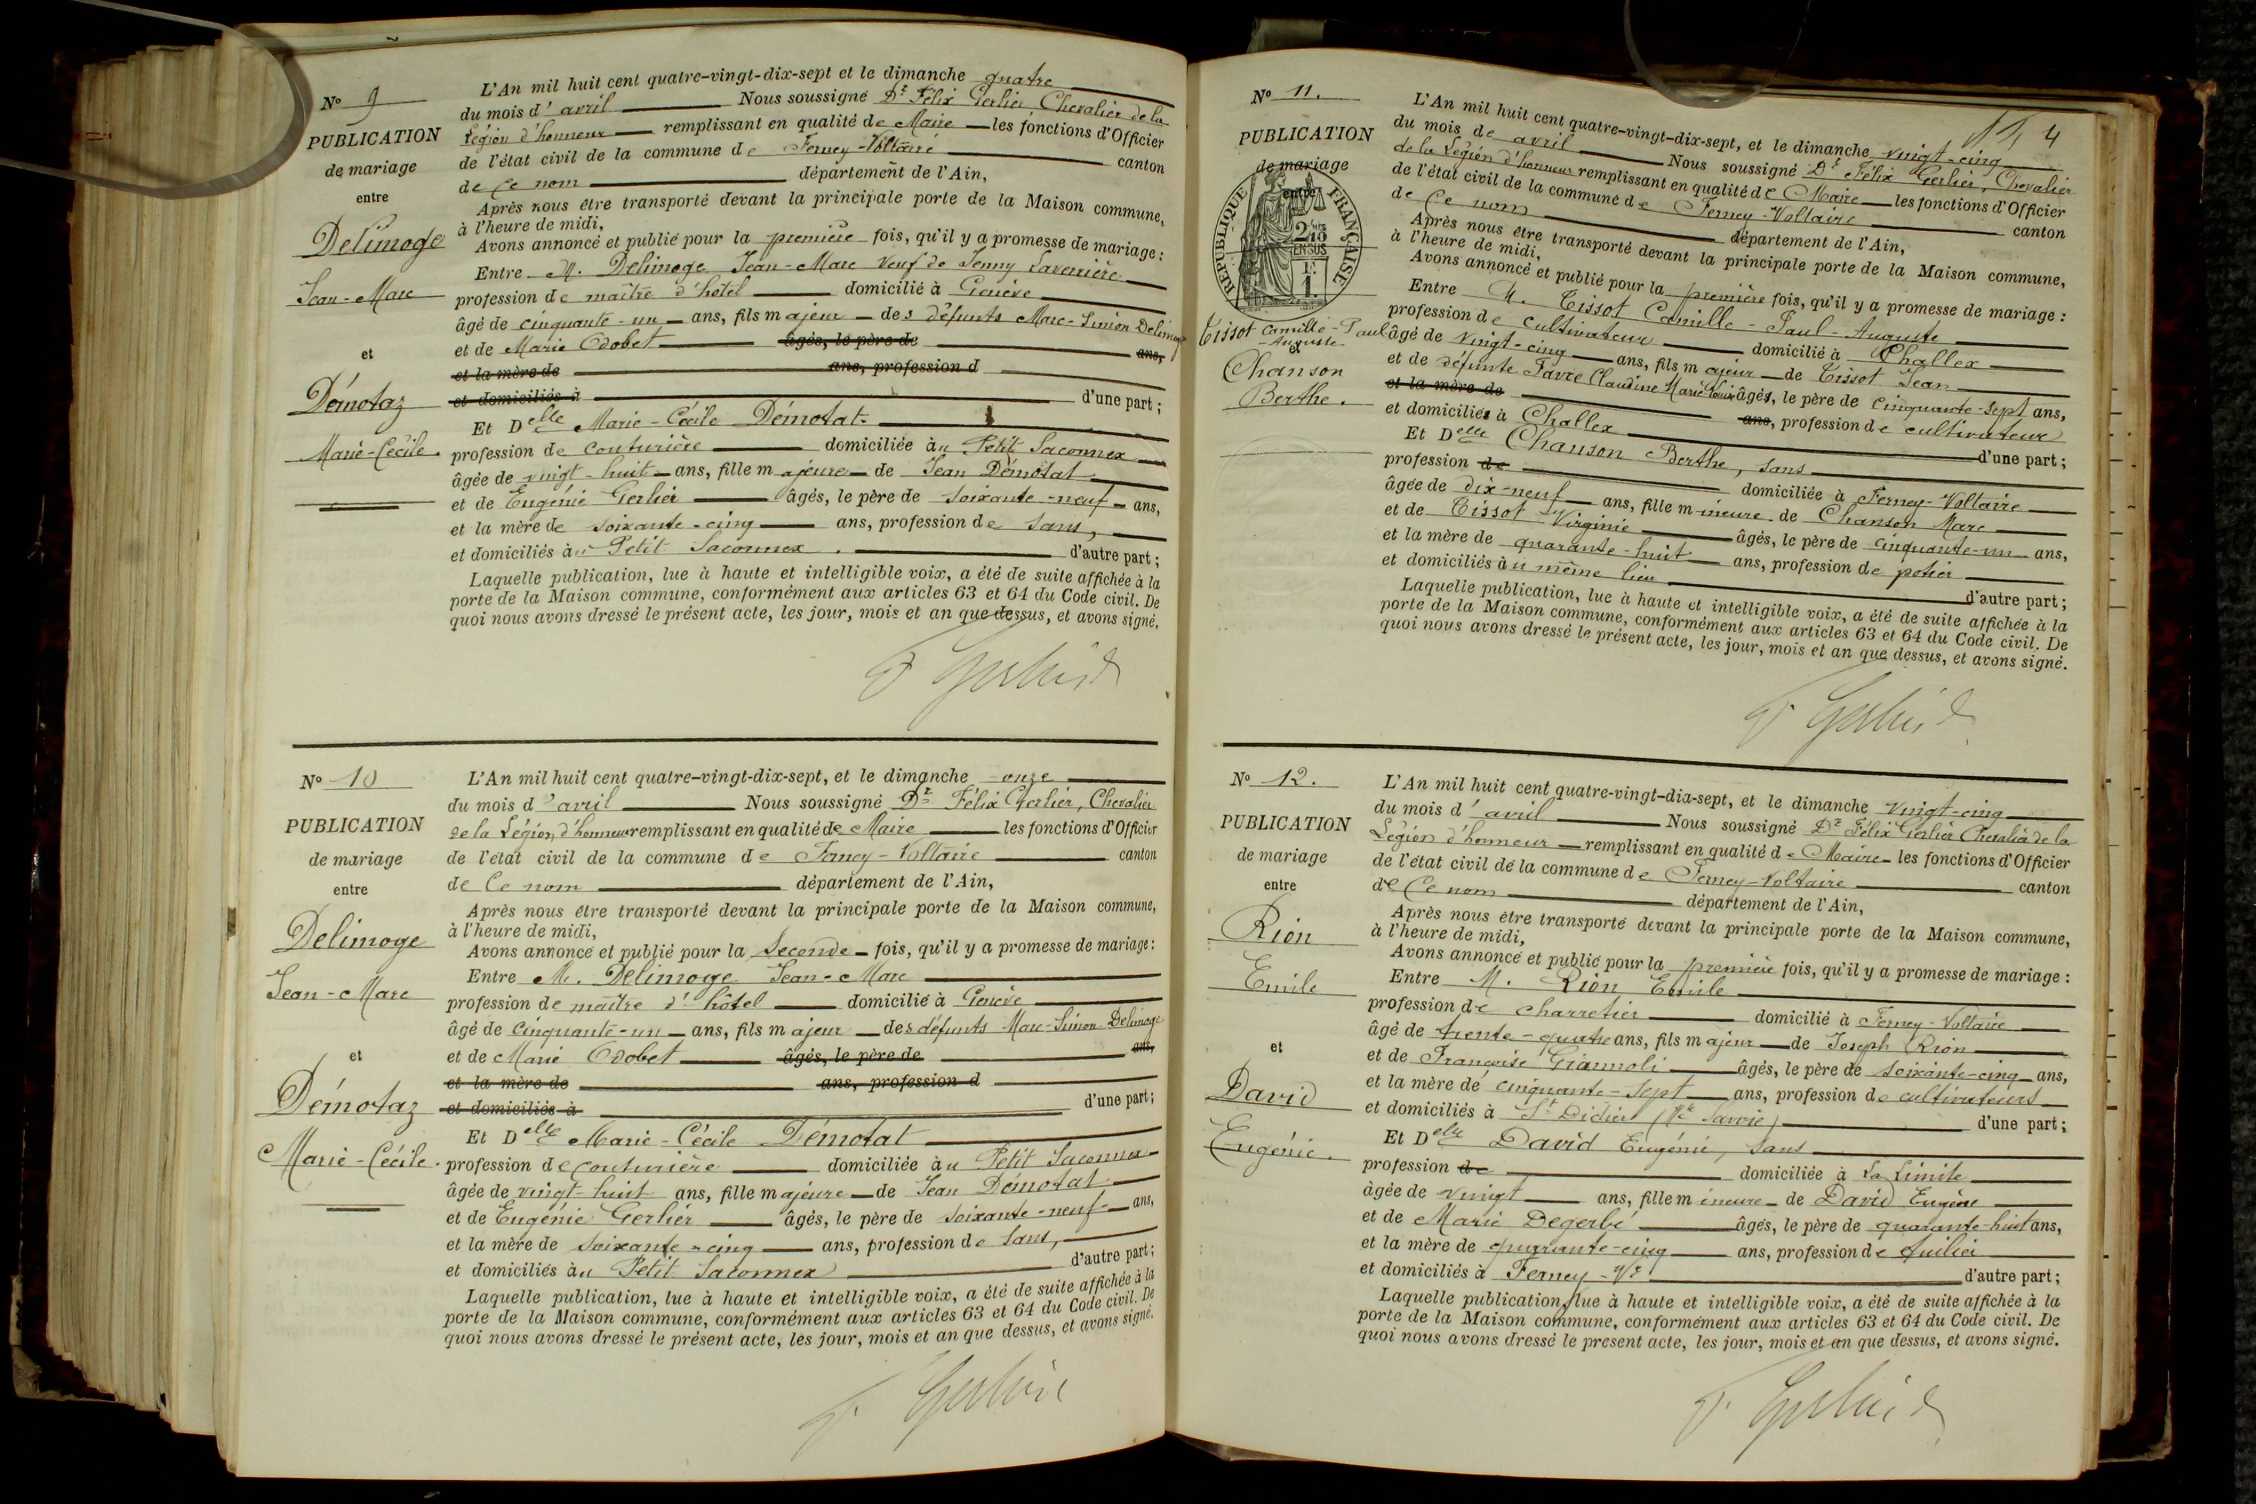 N° 9
PUBLICATION
de mariage
entre
Delimoge
Jean-Marc
et
Démotaz
Marie-Cécile.
L'An mil huit cent quatre-vingt-dix-sept et le dimanche quatre
du mois d'avril Nous soussigné Dr Félix Gerlier Chevalier de la
Légion d'honneur remplissant en qualité de Maire les fonctions d'Officier
de l'état civil de la commune de Ferney-Voltaire canton
de Ce nom département de l'Ain,
Après nous être transporté devant la principale porte de la Maison commune,
à l'heure de midi,
Avons annoncé et publié pour la première fois, qu'il y a promesse de mariage :
Entre M. Delimoge Jean-Marc Veuf de Jenny Lavenière
profession de maître d'hôtel domicilié à Genève
âgé de cinquante-un ans, fils majeur des défunts Marc-Simon Delimoge
et de Marie Odobet âgés, le père de ans,
et la mère de ans, profession d
et domiciliés à d'une part ;
Et Delle Marie-Cécile Démotat.
profession de couturière domiciliée au Petit Saconnex
âgée de vingt-huit ans, fille majeure de Jean Démotat
et de Eugénie Gerlier âgés, le père de soixante-neuf ans,
et la mère de soixante-cinq ans, profession de sans,
et domiciliés au Petit Saconnex. d'autre part ;
Laquelle publication, lue à haute et intelligible voix, a été de suite affichée à la
porte de la Maison commune, conformément aux articles 63 et 64 du Code civil. De
quoi nous avons dressé le présent acte, les jour, mois et an que dessus, et avons signé.
F. Gerlier
N° 10
PUBLICATION
de mariage
entre
Delimoge
Jean-Marc
et
Démotaz
Marie-Cécile.
L'An mil huit cent quatre-vingt-dix-sept, et le dimanche onze
du mois d'avril Nous soussigné Dr Félix Gerlier, Chevalier
de la Légion d'honneur remplissant en qualité de Maire les fonctions d'Officier
de l'état civil de la commune de Ferney-Voltaire canton
de Ce nom département de l'Ain,
Après nous être transporté devant la principale porte de la Maison commune,
à l'heure de midi,
Avons annoncé et publié pour la Seconde fois, qu'il y a promesse de mariage :
Entre M. Delimoge Jean-Marc
profession de maître d'hôtel domicilié à Genève
âgé de cinquante-un ans, fils majeur des défunts Marc-Simon Delimoge
et de Marie Odobet âgés, le père de ans,
et la mère de ans, profession d
et domiciliés à d'une part ;
Et Delle Marie-Cécile Démotat
profession de couturière domiciliée au Petit Saconnex
âgée de vingt-huit ans, fille majeure de Jean Démotat
et de Eugénie Gerlier âgés, le père de soixante-neuf ans,
et la mère de soixante-cinq ans, profession de sans,
et domiciliés au Petit Saconnex d'autre part ;
Laquelle publication, lue à haute et intelligible voix, a été de suite affichée à la
porte de la Maison commune, conformément aux articles 63 et 64 du Code civil. De
quoi nous avons dressé le présent acte, les jour, mois et an que dessus, et avons signé.
F. Gerlier
4
N° 11.
PUBLICATION
de mariage
entre
RÉPUBLIQUE FRANÇAISE
2/10
EN SUS
Tissot Camille-Paul
-Auguste-
&
Chanson
Berthe.
L'An mil huit cent quatre-vingt-dix-sept, et le dimanche vingt-cinq
du mois de avril Nous soussigné Dr Félix Gerlier, Chevalier
de la Légion d'honneur remplissant en qualité de Maire les fonctions d'Officier
de l'état civil de la commune de Ferney-Voltaire canton
de Ce nom département de l'Ain,
Après nous être transporté devant la principale porte de la Maison commune,
à l'heure de midi,
Avons annoncé et publié pour la première fois, qu'il y a promesse de mariage :
Entre M. Tissot Camille-Paul-Auguste
profession de cultivateur domicilié à Challex
âgé de vingt-cinq ans, fils majeur de Tissot Jean
et de défunte Favre Claudine Marie Louise âgés, le père de cinquante-sept ans,
et la mère de ans, profession de cultivateur
et domiciliés à Challex d'une part ;
Et Delle Chanson Berthe, sans
profession de domiciliée à Ferney-Voltaire
âgée de dix-neuf ans, fille mineure de Chanson Marc
et de Tissot Virginie âgés, le père de cinquante-un ans,
et la mère de quarante-huit ans, profession de potier
et domiciliés au même lieu d'autre part ;
Laquelle publication, lue à haute et intelligible voix, a été de suite affichée à la
porte de la Maison commune, conformément aux articles 63 et 64 du Code civil. De
quoi nous avons dressé le présent acte, les jour, mois et an que dessus, et avons signé.
F. Gerlier
N° 12.
PUBLICATION
de mariage
entre
Rion
Emile
et
David
Eugénie.
L'An mil huit cent quatre-vingt-dix-sept, et le dimanche vingt-cinq
du mois d'avril Nous soussigné Dr Félix Gerlier Chevalier de la
Légion d'honneur remplissant en qualité de Maire les fonctions d'Officier
de l'état civil de la commune de Ferney-Voltaire canton
de Ce nom département de l'Ain,
Après nous être transporté devant la principale porte de la Maison commune,
à l'heure de midi,
Avons annoncé et publié pour la première fois, qu'il y a promesse de mariage :
Entre M. Rion Emile
profession de charretier domicilié à Ferney-Voltaire
âgé de trente-quatre ans, fils majeur de Joseph Rion
et de Françoise Giannoli âgés, le père de soixante-cinq ans,
et la mère de cinquante-sept ans, profession de cultivateurs
et domiciliés à St Didier (Hte Savoie) d'une part ;
Et Delle David Eugénie, sans
profession de domiciliée à La Limite
âgée de vingt ans, fille mineure de David Eugène
et de Marie Degerbe âgés, le père de quarante-huit ans,
et la mère de quarante-cinq ans, profession de
et domiciliés à Ferney-Vre d'autre part ;
Laquelle publication, lue à haute et intelligible voix, a été de suite affichée à la
porte de la Maison commune, conformément aux articles 63 et 64 du Code civil. De
quoi nous avons dressé le présent acte, les jour, mois et an que dessus, et avons signé.
F. Gerlier